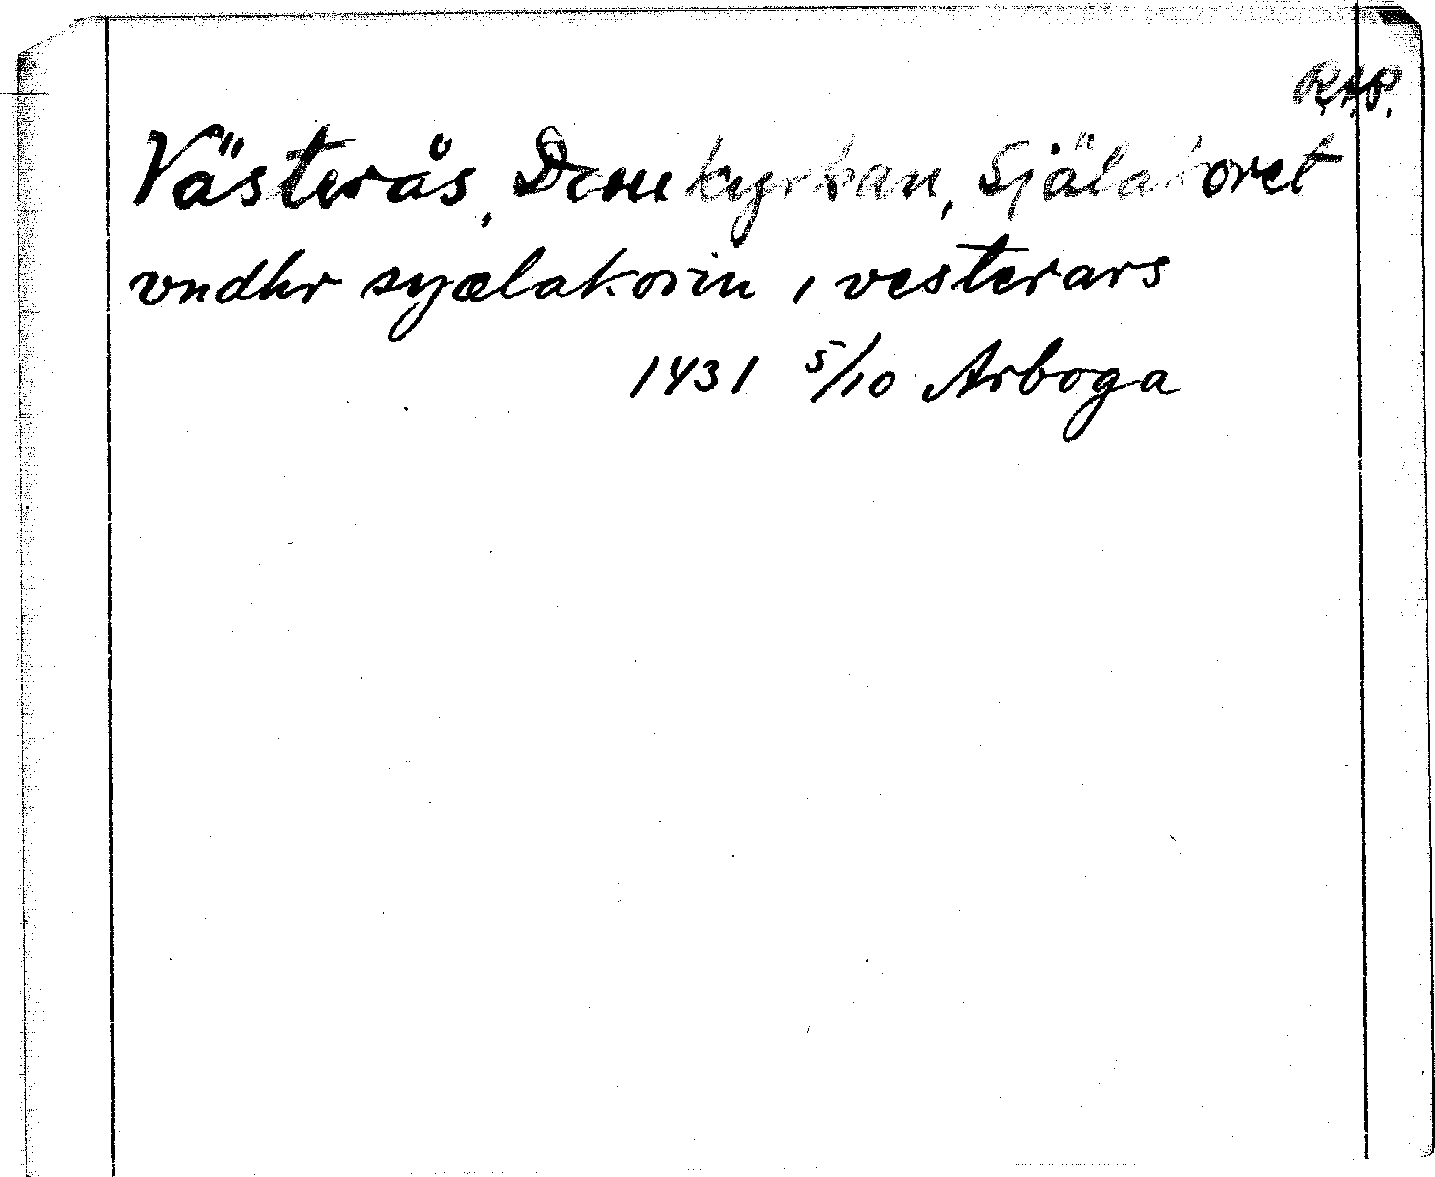 R.A.P.
Västerås, Domkyrkan, Själakoret
vndhr syælakorin i vesterars
1431 5/10 Arboga